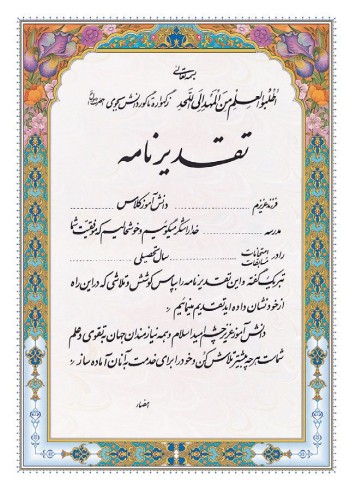 بسمه تعالی
اُطلُبوا العِلمِ مِنَ المَهدِ اِلَی اللَّحدِ ز گهواره تا گور دانش بجوی
تقدیرنامه
فرزند عزیزم .................... دانش آموز کلاس ....................
مدرسه .................... خدا را شکر میگوییم و خوشحالیم که موفقیت شما
را در امتحانات مسابقات .................... سال تحصیلی ....................
تبریک گفته و این تقدیرنامه را بپاس کوشش و تلاشی که در این راه
از خود نشان داده اید تقدیم مینمائیم
دانش آموز عزیز چشم امید اسلام و همه نیازمندان جهان به تقوی و علم
شماست هر چه بیشتر تلاش کن و خود را برای خدمت به آنان آماده ساز
امضاء